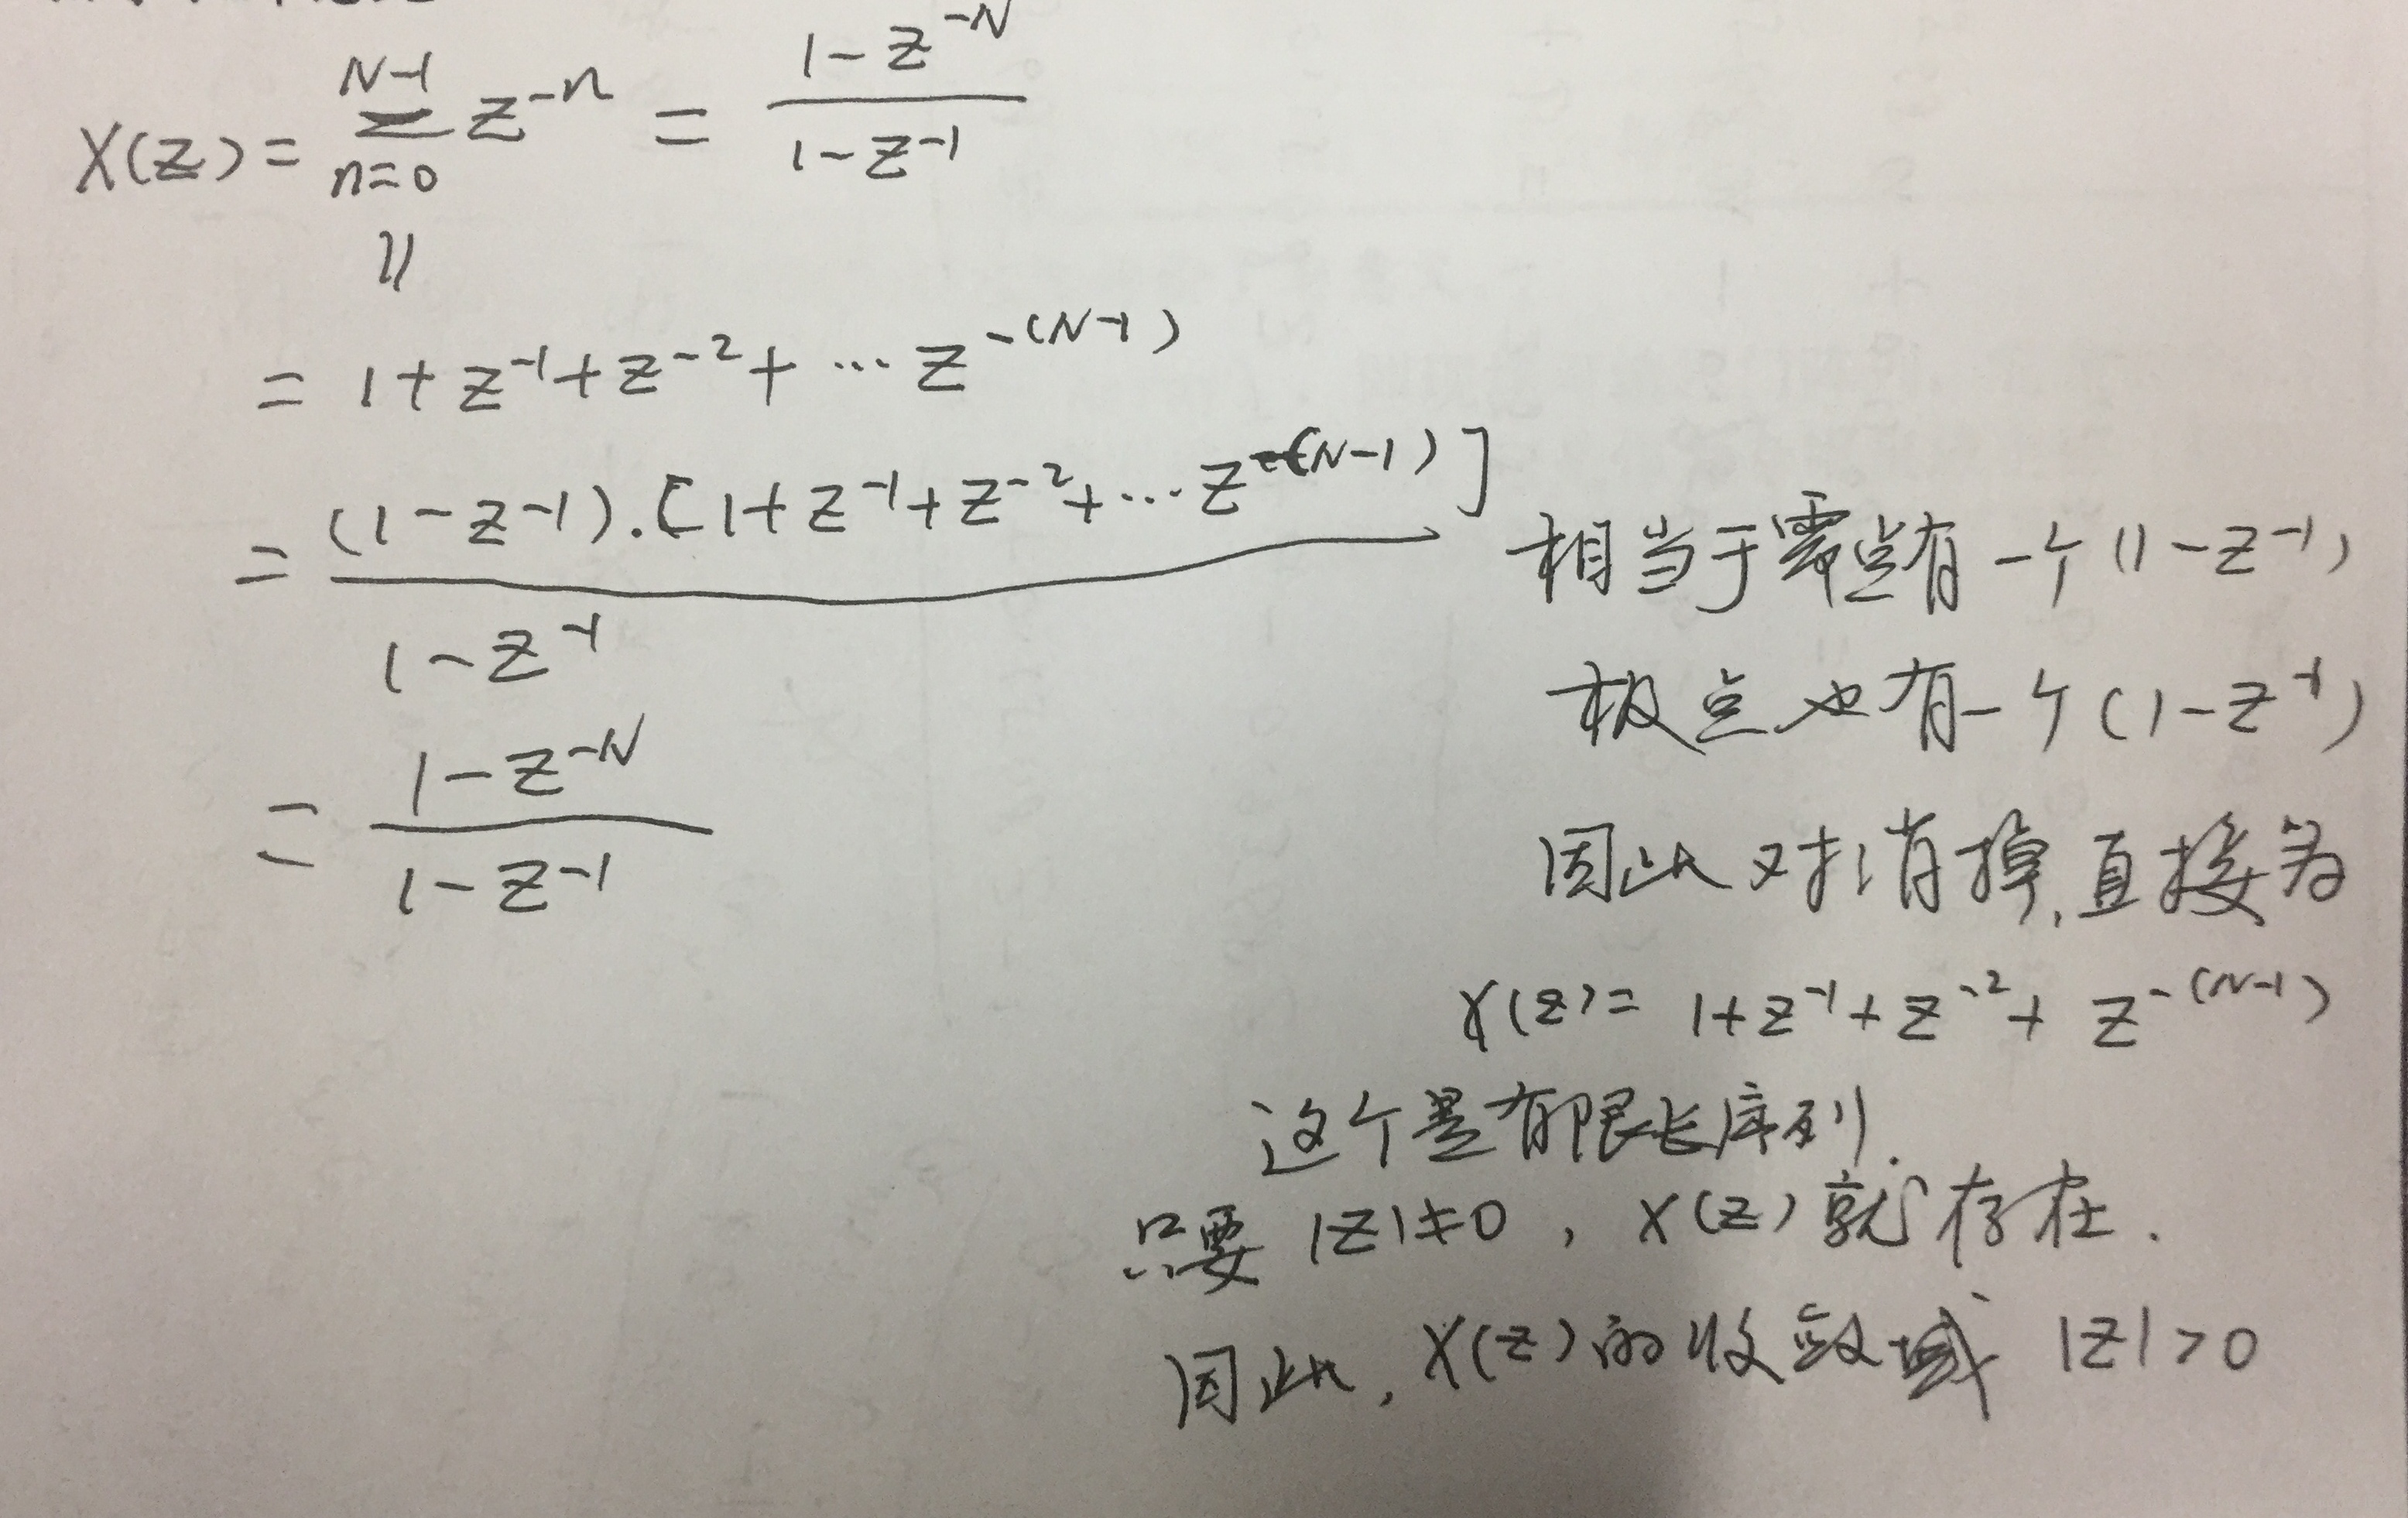 X(z) = \sum_{n=0}^{N-1} z^{-n} = \frac{1-z^{-N}}{1-z^{-1}}
||
= 1+z^{-1}+z^{-2}+ … z^{-(N-1)}
= \frac{(1-z^{-1})·[1+z^{-1}+z^{-2}+…z^{-(N-1)}]}{1-z^{-1}}
= \frac{1-z^{-N}}{1-z^{-1}}
相当于零点有一个(1-z^{-1})
极点也有一个(1-z^{-1})
因此对消掉,直接为
X(z)= 1+z^{-1}+z^{-2}+ z^{-(N-1)}
这个是有限长序列.
只要 |z|≠0, X(z)就存在.
因此, X(z)的收敛域 |z|>0